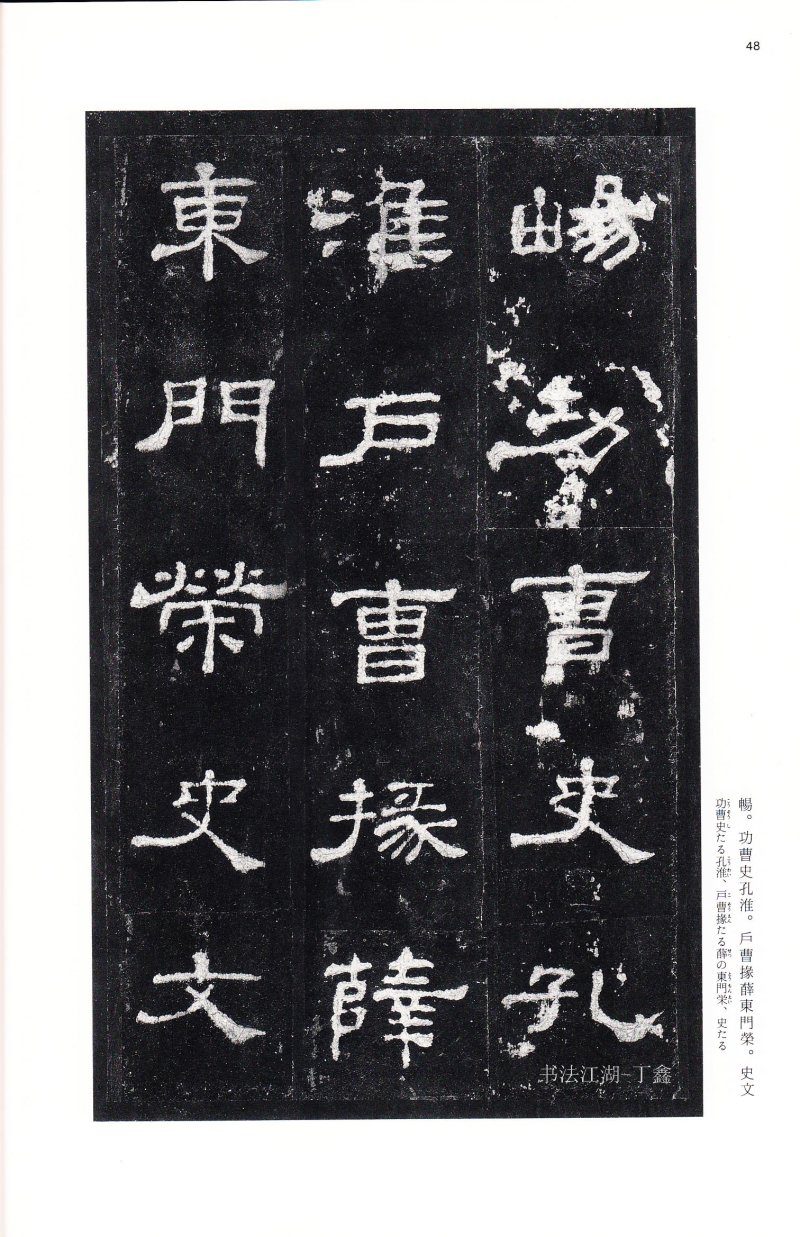 48
暢功曹史孔
淮戶曹掾薛
東門榮史文
暢。功曹史孔淮。戶曹掾薛東門榮。史文
功曹史たる孔淮、戸曹掾たる薛の東門栄、史たる
书法江湖-丁鑫